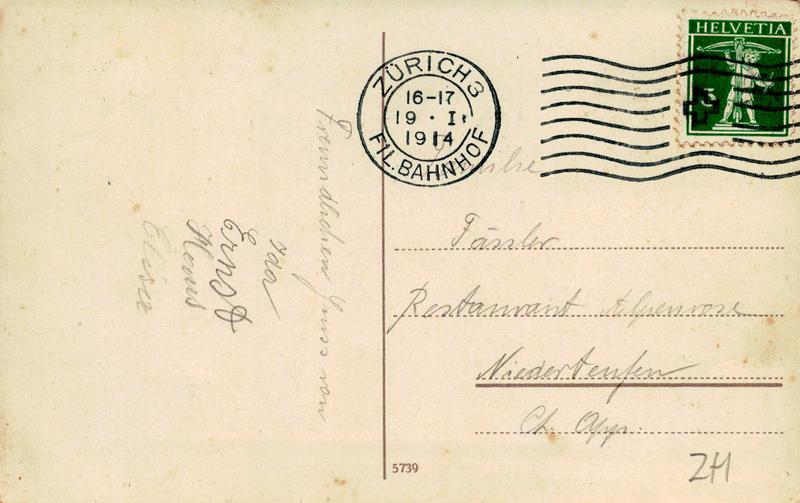 HELVETIA
5
ZÜRICH 3
16-17
19 · I ·
1914
FIL. BAHNHOF
Familie
Fässler
Restaurant Alpenrose
Niederteufen
Ct. App.
ZH
5739
Freundlichen Gruss von
Ida
Ernst
Hans
Elisa